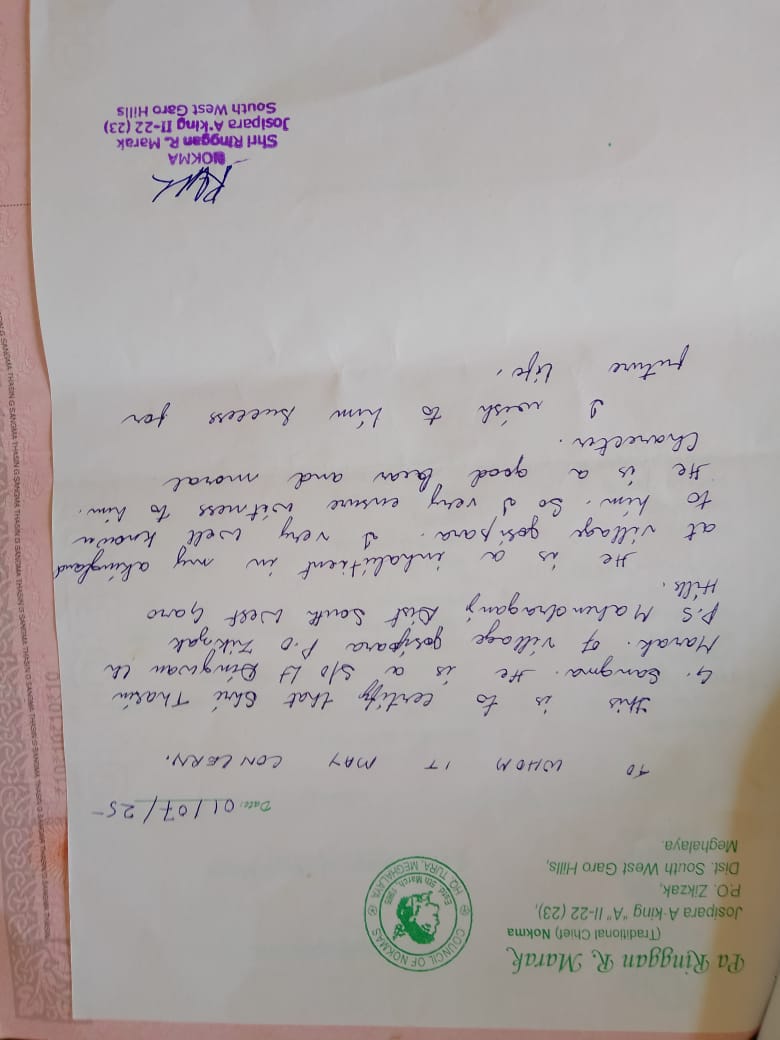 Pa Ringgan R. Marak
(Traditional Chief) Nokma
Josipara A·king "A" II-22 (23),
P.O. Zikzak,
Dist. South West Garo Hills,
Meghalaya.
COUNCIL OF NOKMAS
Estd. 5th March, 1985
HQ. TURA, MEGHALAYA
Date: 01/07/25
TO WHOM IT MAY CONCERN.
This is to certify that Shri Thasin
G. Sangma. He is a S/o Lt Dingwan Ch
Marak. of village gosipara P.O Zikzak
P.S Mahendraganj Dist South West Garo
Hills.
He is a inhalitient in my akingland
at village gosipara. I very well known
to him. So I very ensure witness to him.
He is a good bear and moral
Charecter.
I wish to him success for
future life.
NOKMA
Shri Ringgan R. Marak
Josipara A'king II-22 (23)
South West Garo Hills
THASIN G SANGMA THASIN G SANGMA THASIN G SANGMA THASIN G SANGMA